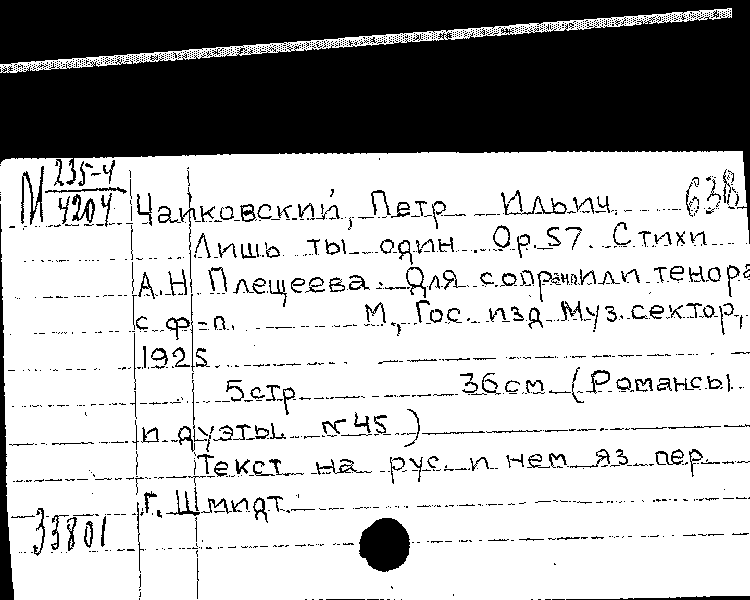 М 235-4
4204
Чайковский, Петр Ильич 638
Лишь ты один. Ор. 57. Стихи
А.Н. Плещеева. Для сопрано или тенора
с ф=п. М., Гос. изд. Муз. сектор,
1925
5 стр 36 см (Романсы
и дуэты. № 45)
Текст на рус. и нем яз пер.
Г. Шмидт.
33801